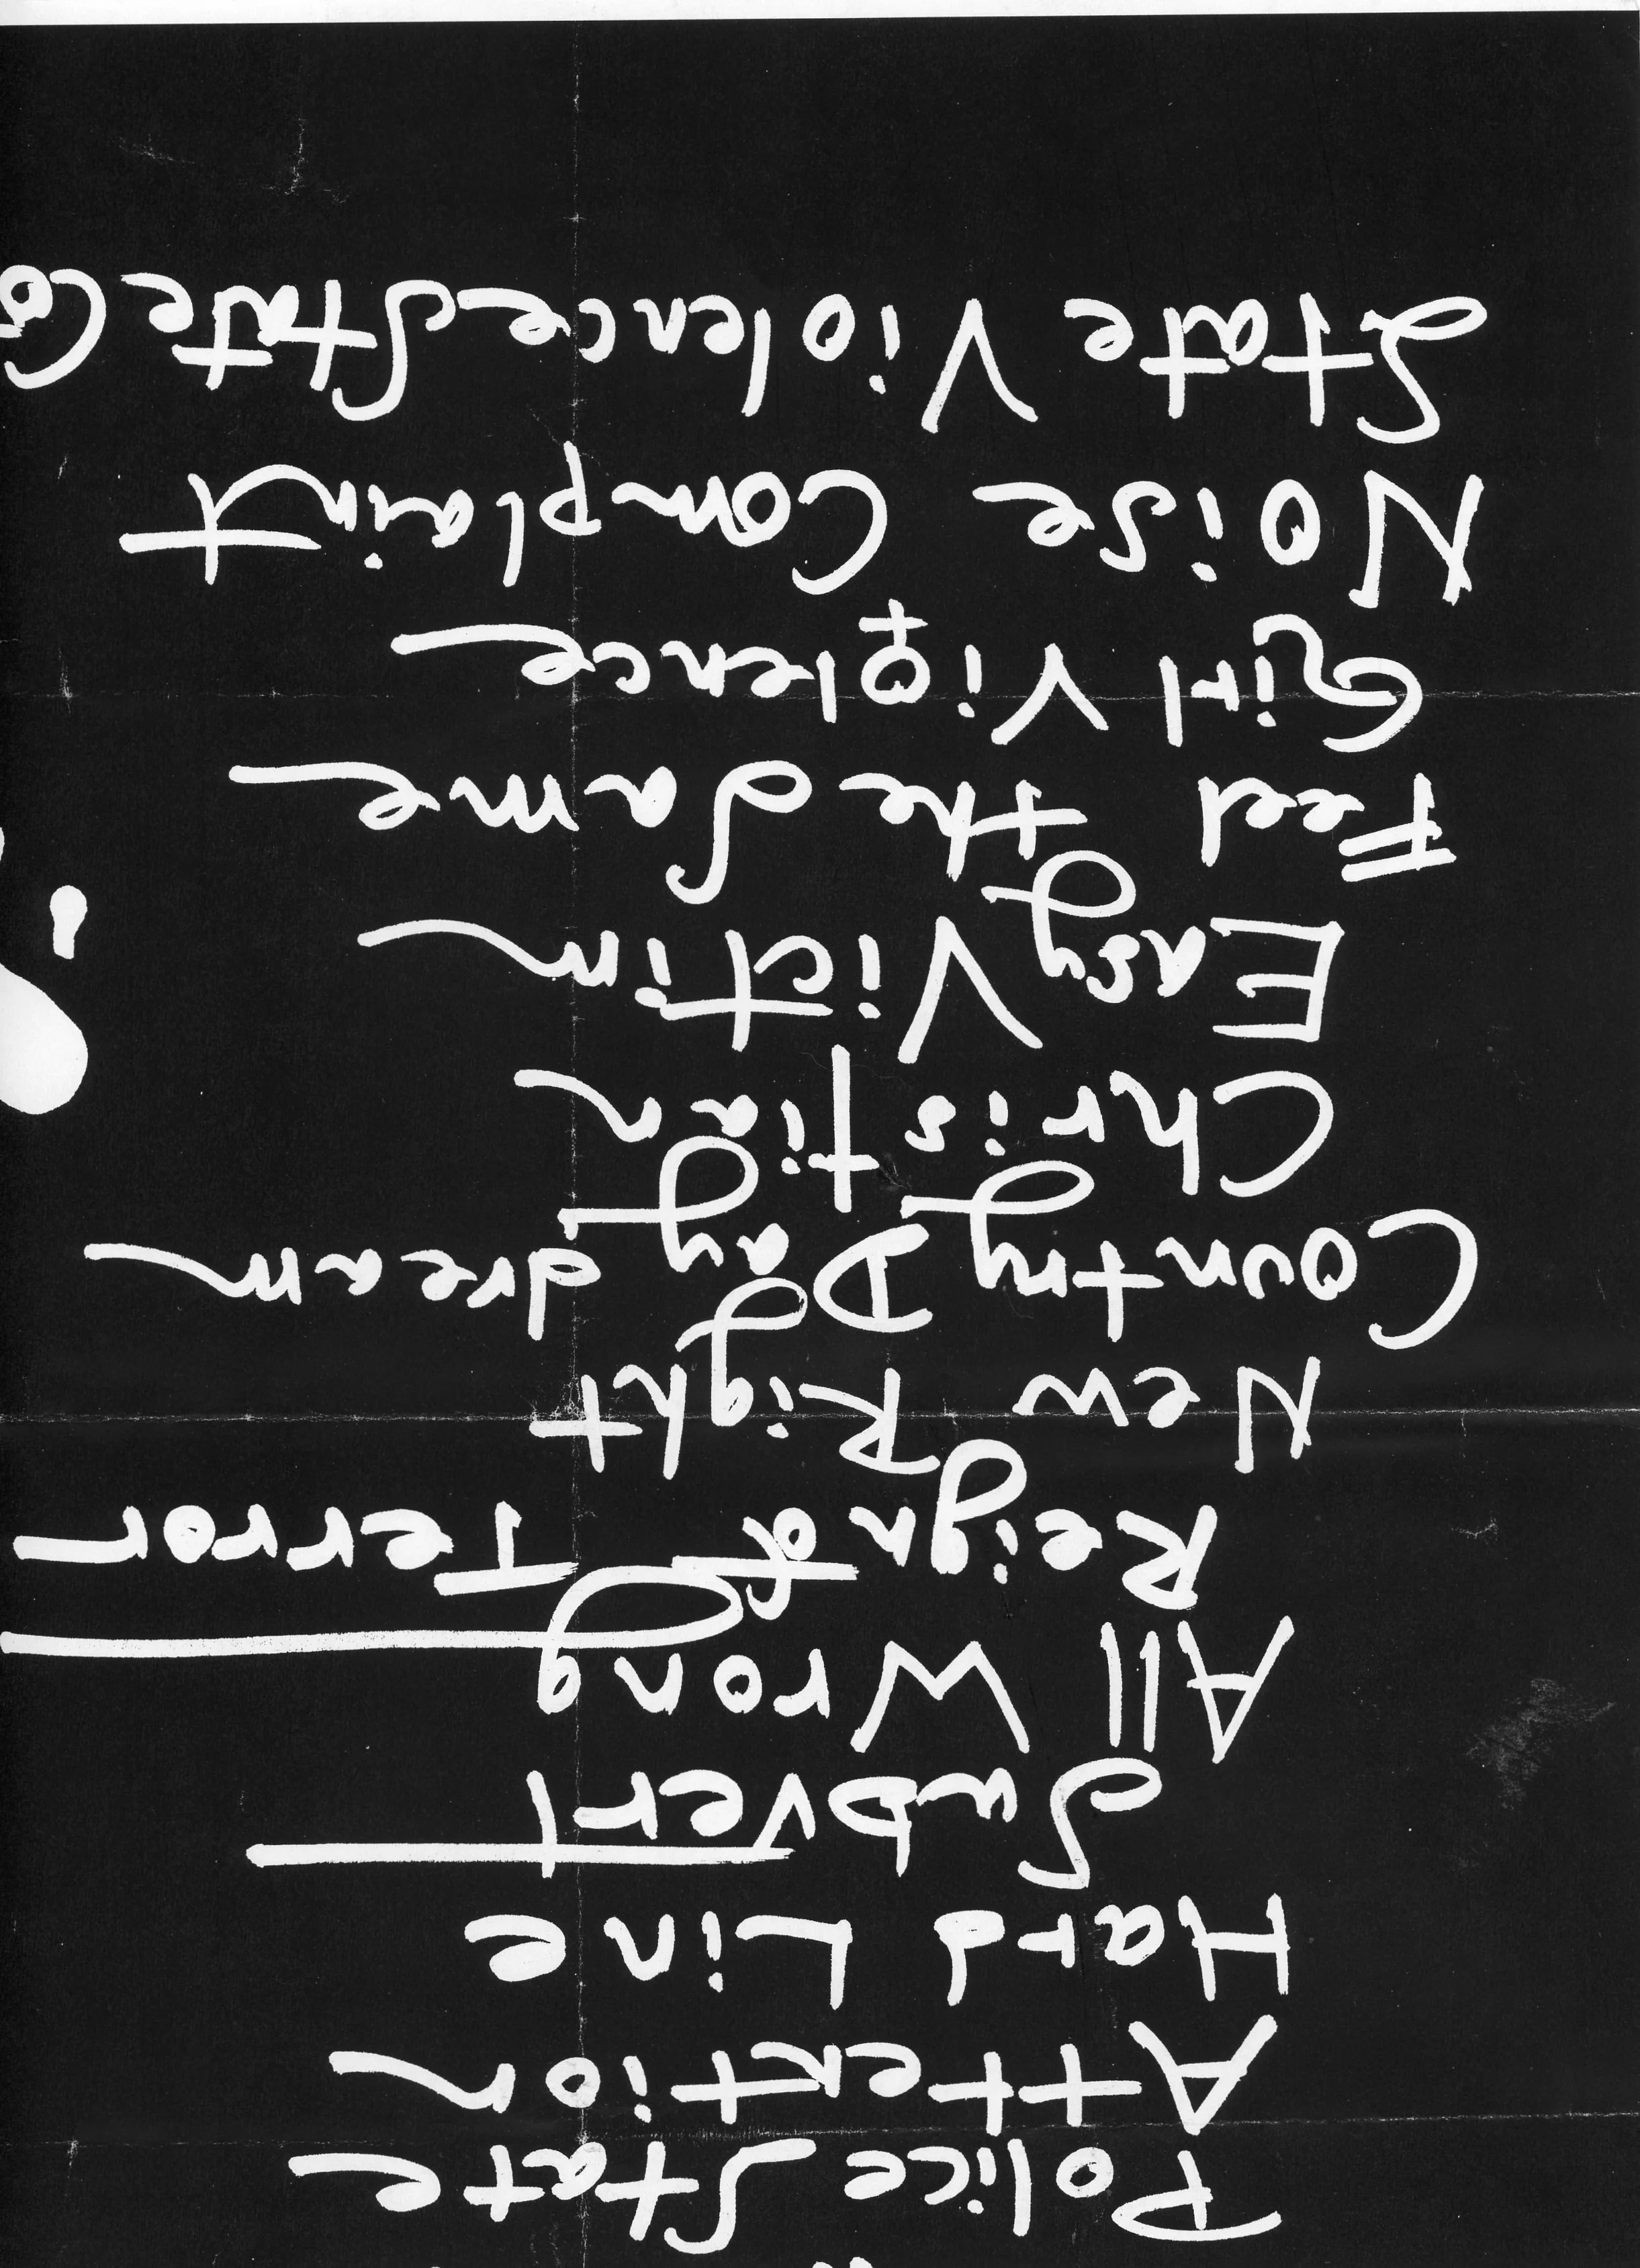 Police State
Attention
Hard Line
Subvert
All Wrong
Reign of Terror
New Right
Country Day dream
Christian
Easy Victim
Feel the Same
Girl Violence
Noise Complaint
State Violence State Co